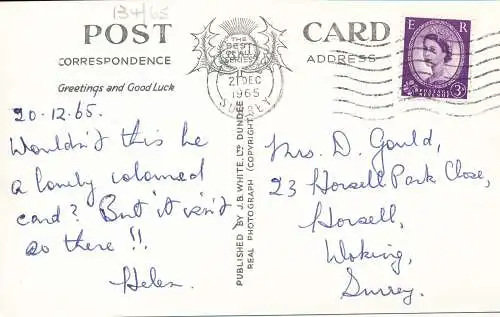 134/65
POST CARD
THE
BEST
OF ALL
SERIES
CORRESPONDENCE
ADDRESS
Greetings and Good Luck
21 DEC
1965
SURREY
E R
POSTAGE
REVENUE
3D
20-12-65.
Wouldn't this be
a lovely coloured
card? But it isn't
so there !!
Helen.
PUBLISHED BY J.B. WHITE, LTD. DUNDEE
REAL PHOTOGRAPH (COPYRIGHT)
Mrs. D. Gould,
23 Horsell Park Close,
Horsell,
Woking,
Surrey.